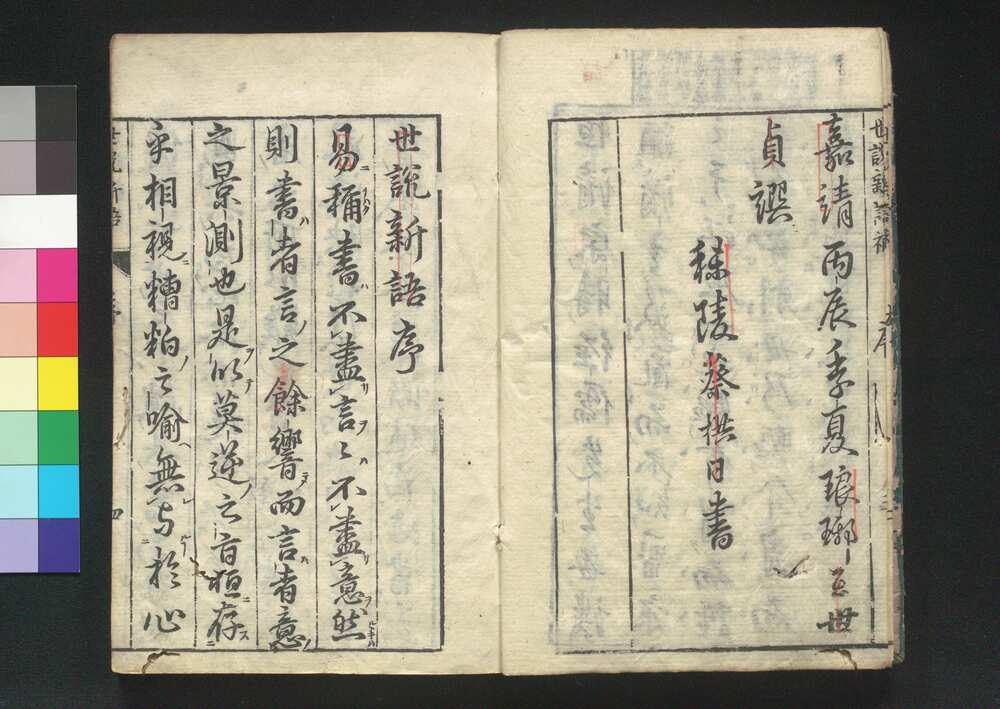 世說新語補 序
嘉靖丙辰季夏琅琊王世
貞譔
秣陵蔡拱日書
世說新語序
易稱書不盡言〻不盡意然
則書者言之餘響而言者意
之景測也是以莫逆之旨恒存
乎相視糟粕之喻無与於心
世說新語 四